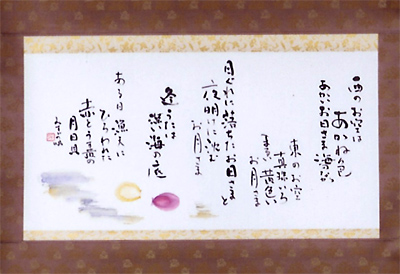 西のお空は
あかね色
あかいお日さま海に
東のお空
真珠いろ
まるい黄色い
お月さま
日ぐれに落ちたお日さまと
夜明けに沈む
お月さま
逢うたは
深い海の底
ある日 漁夫に
ひろわれた
赤とうす黄の
月日貝